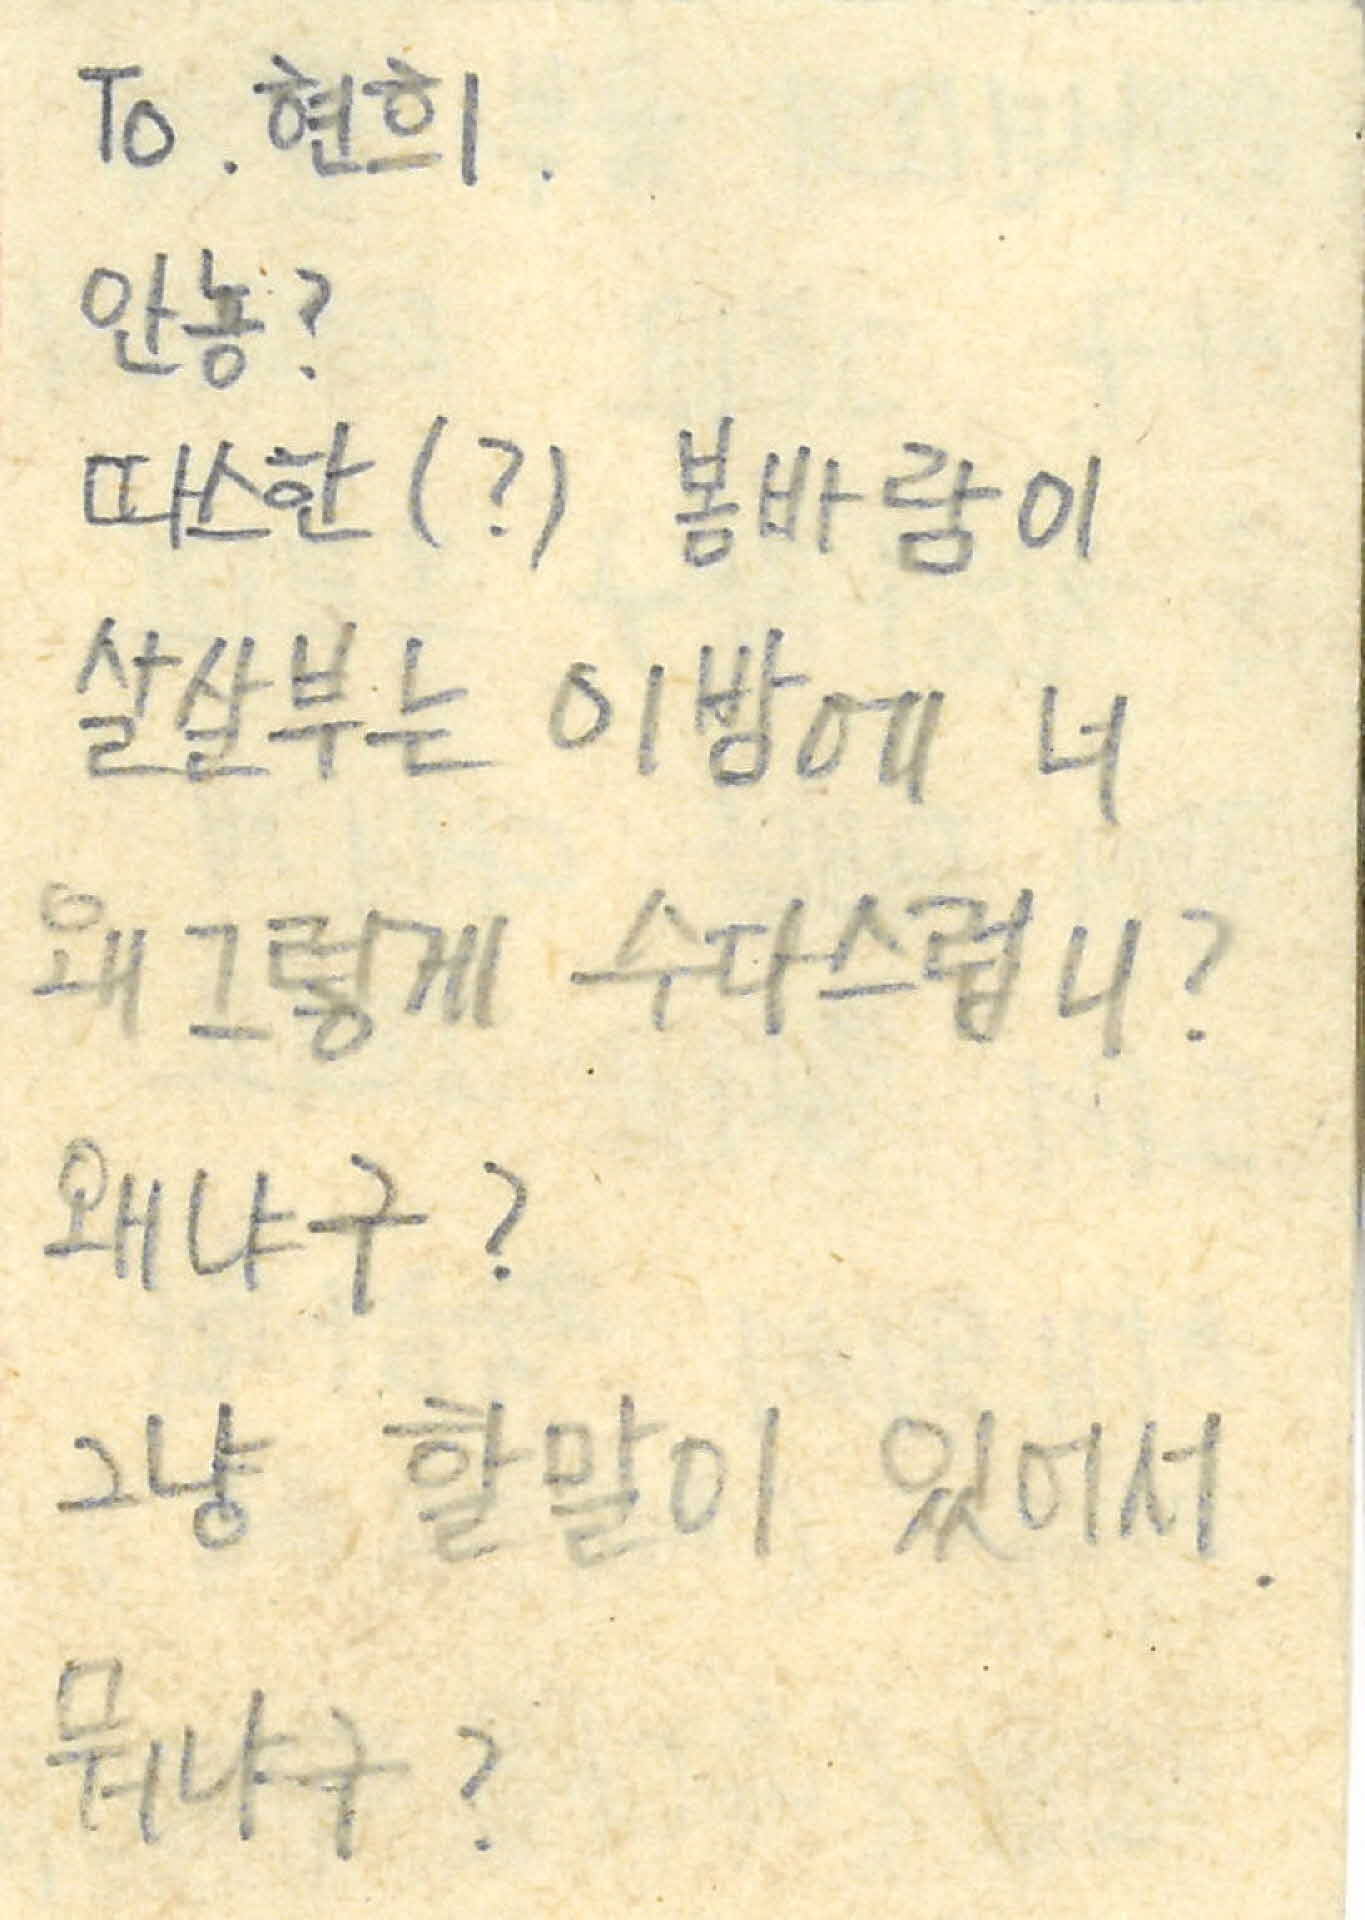 To. 현희.
안뇽?
따스한(?) 봄바람이
살살부는 이밤에 너
왜그렇게 수다스럽니?
왜냐구?
그냥 할말이 있어서.
뭐냐구?